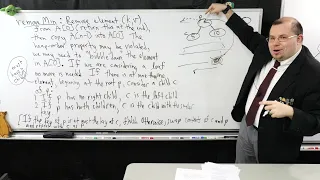 Remove Min: Remove element (k,r)
from A[0], return this at the end.
Then copy A[n-1] into A[0]. The
heap-order property may be violated,
we may need to "bubble down" the element
in A[0]. If we are considering a leaf
no more is needed. If there is at one
element beginning at the root p, consider a child c
of p.
1 If p has no right child, c is the left child
2 If p has both children, c is the child with the
key
If the key of p is at most the key of c, finish. Otherwise, swap contents of c and p
and repeat with c as p